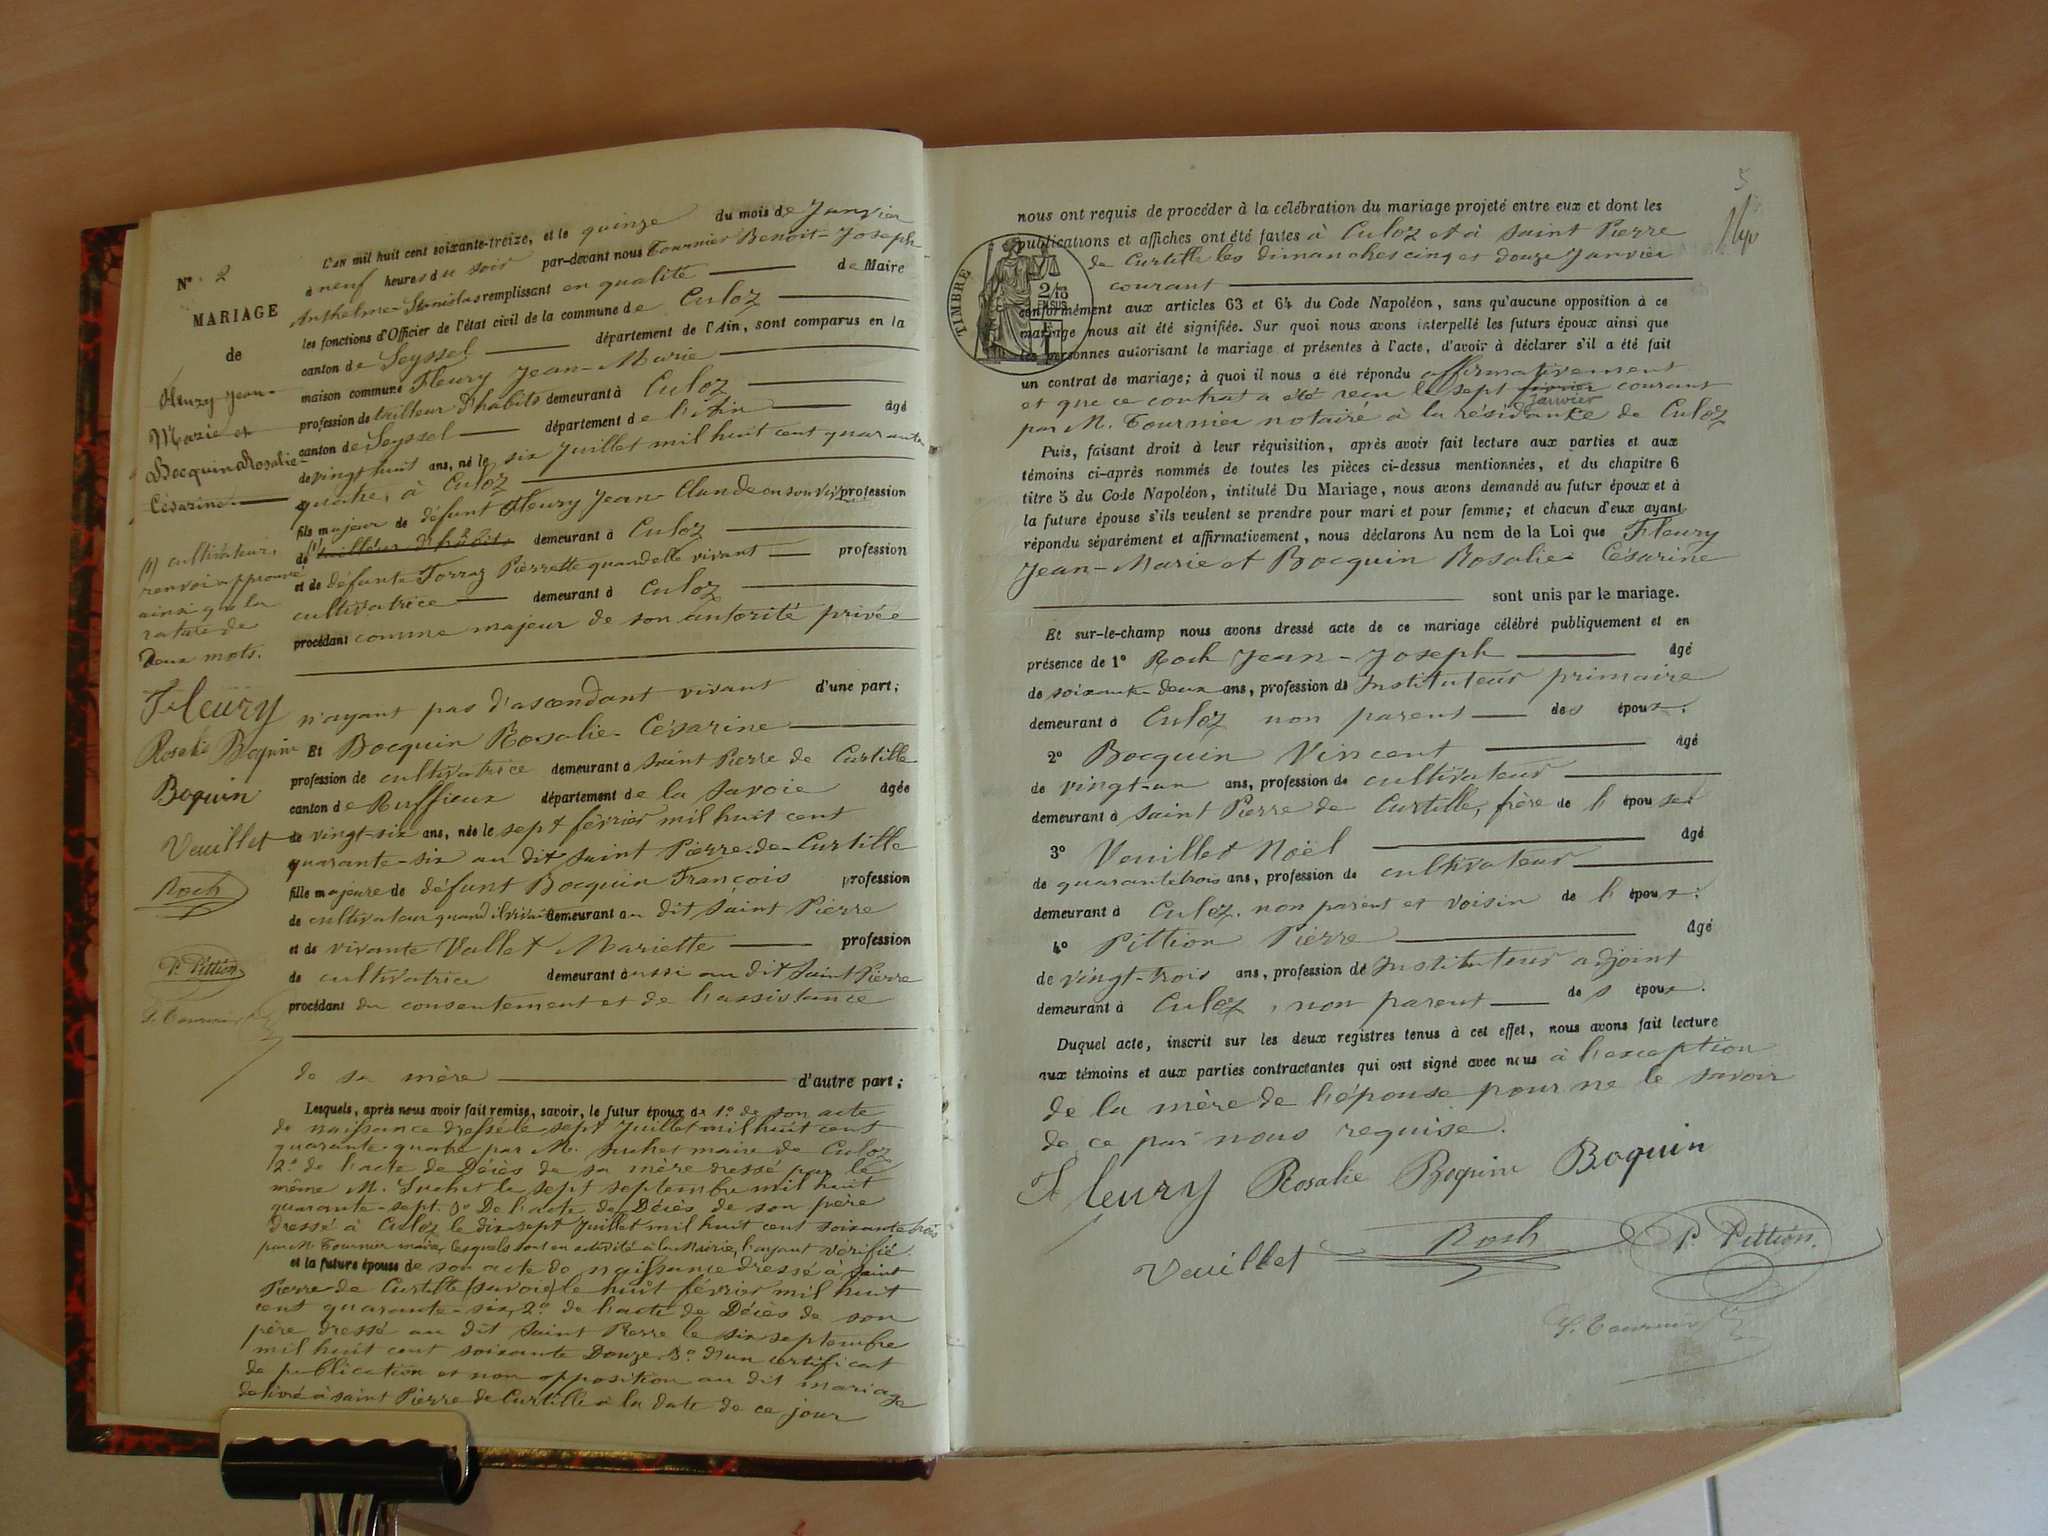 N° 2
MARIAGE
de
Fleury Jean-
Marie et
Bocquin Rosalie-
Césarine
(1) cultivateur,
renvoi approuvé
ainsi que la
rature de
deux mots.
Fleury
Rosalie Boquin
Boquin
Veuillet
Roch
P. Pittion
L'an mil huit cent soixante-treize, et le quinze du mois de Janvier
à neuf heures du soir par-devant nous Tournier Benoit-Joseph
Anthelme-Stanislas remplissant en qualité de Maire
les fonctions d'Officier de l'état civil de la commune de Culoz
canton de Seyssel département de l'Ain, sont comparus en la
maison commune Fleury Jean-Marie
profession de tailleur d'habits demeurant à Culoz
canton de Seyssel département de l'Ain âgé
de vingt huit ans, né le six Juillet mil huit cent quarante
quatre, à Culoz
fils majeur de défunt Fleury Jean-Claude en son vivant profession
de (1) tailleur d'habits demeurant à Culoz
et de défunte Torraz Pierrette quand elle vivait profession
cultivatrice demeurant à Culoz
procédant comme majeur de son autorité privée
n'ayant pas d'ascendant vivant d'une part;
Et Bocquin Rosalie-Césarine
profession de cultivatrice demeurant à Saint Pierre de Curtille
canton de Ruffieux département de la Savoie âgée
de vingt-six ans, née le sept février mil huit cent
quarante-six au dit Saint Pierre-de-Curtille
fille majeure de défunt Bocquin François profession
de cultivateur quand il vivait demeurant au dit Saint Pierre
et de vivante Vallet Mariette profession
de cultivatrice demeurant aussi au dit Saint Pierre
procédant du consentement et de l'assistance
de sa mère d'autre part;
Lesquels, après nous avoir fait remise, savoir, le futur époux de 1° de son acte
de naissance dressé le sept Juillet mil huit cent
quarante-quatre par M. Suchet maire de Culoz
2° de l'acte de Décès de sa mère dressé par le
même M. Suchet le sept septembre mil huit
quarante-sept. 3° De l'acte de Décès de son père
dressé à Culoz le dix-sept Juillet mil huit cent soixante trois
par M. Tournier maire, lesquels sont en activité à la Mairie, l'ayant vérifié.
et la future épouse de son acte de naissance dressé à Saint
Pierre de Curtille (Savoie) le huit février mil huit
cent quarante-six, 2° de l'acte de Décès de son
père dressé au dit Saint Pierre le six septembre
mil huit cent soixante Douze. 3° d'un certificat
de publication et non opposition au dit mariage
délivré à Saint Pierre de Curtille à la date de ce jour
5
nous ont requis de procéder à la célébration du mariage projeté entre eux et dont les
publications et affiches ont été faites à Culoz et à Saint Pierre
de Curtille les dimanches cinq et douze Janvier
courant
TIMBRE
2/10
EN SUS
conformément aux articles 63 et 64 du Code Napoléon, sans qu'aucune opposition à ce
mariage nous ait été signifiée. Sur quoi nous avons interpellé les futurs époux ainsi que
les personnes autorisant le mariage et présentes à l'acte, d'avoir à déclarer s'il a été fait
un contrat de mariage; à quoi il nous a été répondu affirmativement
et que ce contrat a été reçu le sept février courant
Janvier
par M. Tournier notaire à la résidence de Culoz
Puis, faisant droit à leur réquisition, après avoir fait lecture aux parties et aux
témoins ci-après nommés de toutes les pièces ci-dessus mentionnées, et du chapitre 6
titre 5 du Code Napoléon, intitulé Du Mariage, nous avons demandé au futur époux et à
la future épouse s'ils veulent se prendre pour mari et pour femme; et chacun d'eux ayant
répondu séparément et affirmativement, nous déclarons Au nom de la Loi que Fleury
Jean-Marie et Bocquin Rosalie-Césarine
sont unis par le mariage.
Et sur-le-champ nous avons dressé acte de ce mariage célébré publiquement et en
présence de 1° Roch Jean-Joseph âgé
de soixante-deux ans, profession de Instituteur primaire
demeurant à Culoz non parent des époux.
2° Bocquin Vincent âgé
de vingt-un ans, profession de cultivateur
demeurant à Saint Pierre de Curtille, frère de l'épouse.
3° Veuillet Noël âgé
de quarante trois ans, profession de cultivateur
demeurant à Culoz, non parent et voisin de l'époux.
4° Pittion Pierre âgé
de vingt-trois ans, profession de Instituteur adjoint
demeurant à Culoz, non parent des époux.
Duquel acte, inscrit sur les deux registres tenus à cet effet, nous avons fait lecture
aux témoins et aux parties contractantes qui ont signé avec nous à l'exception
de la mère de l'épouse pour ne le savoir
de ce par nous requise.
Fleury Rosalie Boquin Boquin
Veuillet Roch P. Pittion